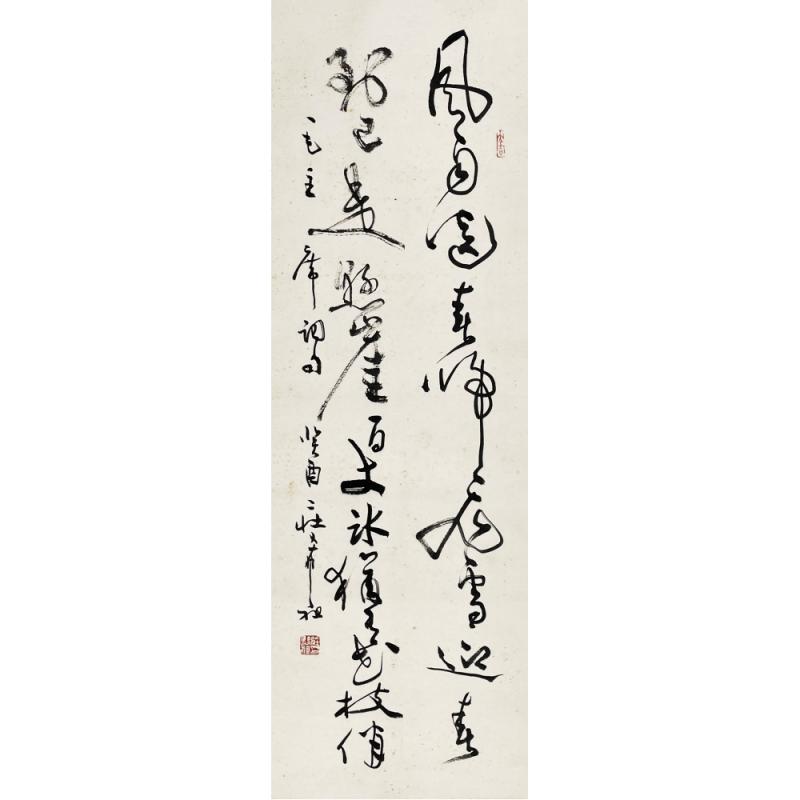 風雨送春歸飛雪迎春
到已是懸崖百丈冰猶有花枝俏
毛主席詞句 癸酉 莊希祖